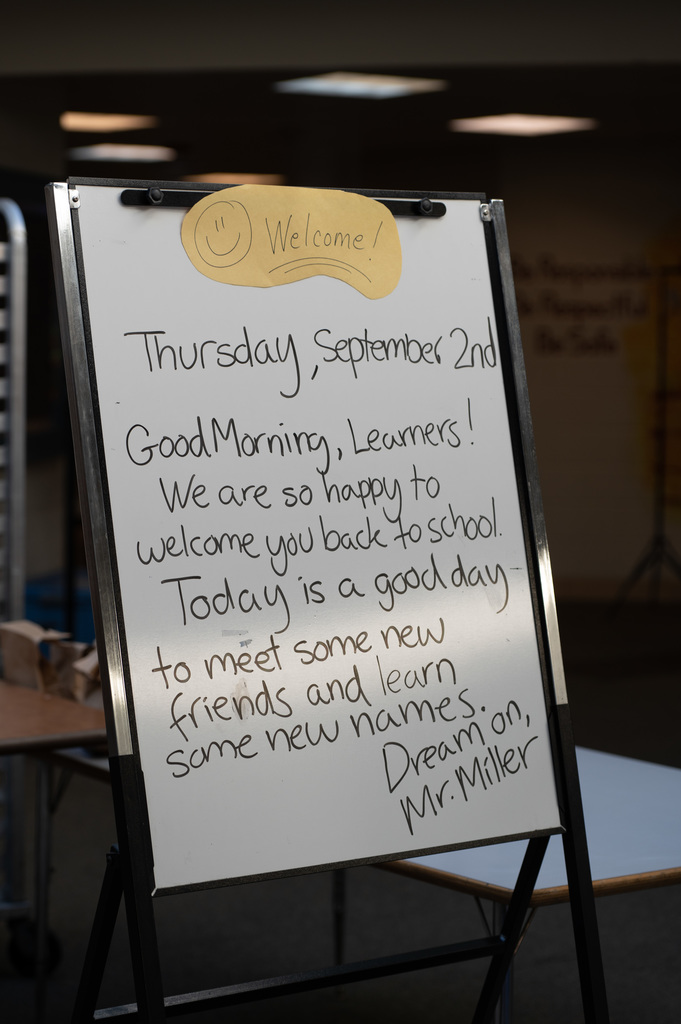 Welcome!
Thursday, September 2nd
Good Morning, Learners!
We are so happy to
welcome you back to school.
Today is a good day
to meet some new
friends and learn
some new names.
Dream on,
Mr. Miller
Be Responsible
Be Respectful
Be Safe